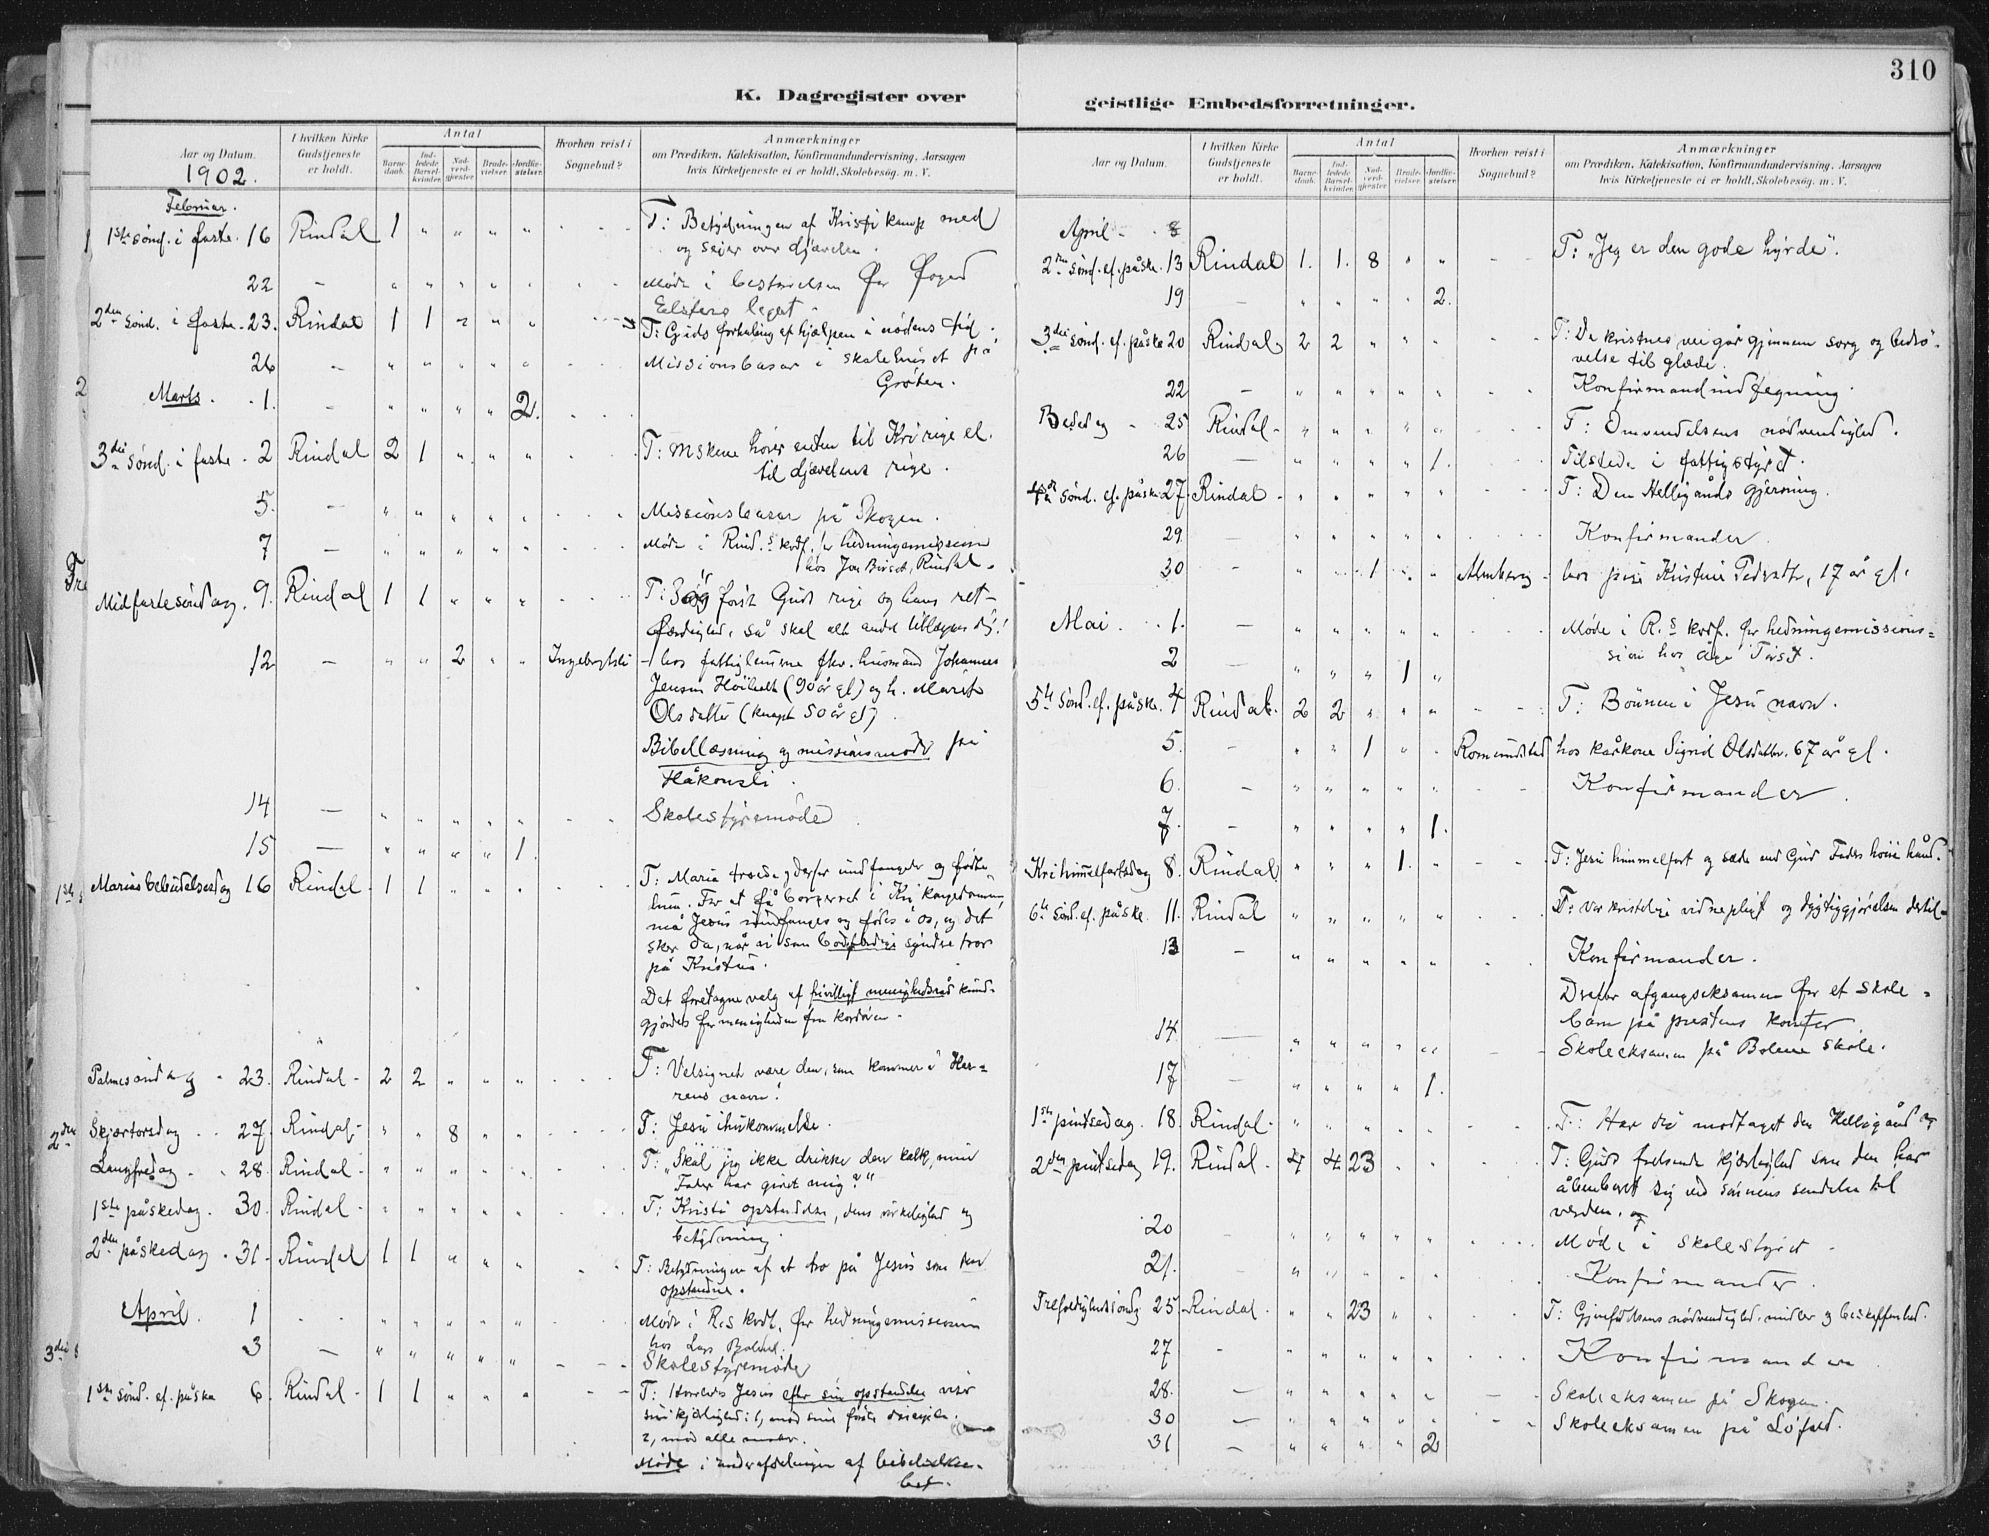 310
K. Dagregister over
geistlige Embedsforretninger.
Aar og Datum.
1902.
I hvilken Kirke Gudstjeneste er holdt.
Antal
Barnedaab. Indledede Barselkvinder. Nadverdgjester. Brudevielser. Jordfæstelser.
Hvorhen reist i Sognebud?
Anmærkninger
om Prædiken, Katekisation, Konfirmandundervisning, Aarsagen
hvis Kirketjeneste ei er holdt, Skolebesøg. m. V.
Februar.
1ste sønd. i faste. 16 Rindal 1 " " " " T: Betydningen af Kristi kamp med
og seier over djævelen.
22 – " " " " " Møde i bestyrelsen for Foged
legat
2den sønd. i faste. 23. Rindal 1 1 " " " T: Guds forhaling af hjælpen i nødens tid.
26 – " " " " " Missionsbasar i skolehuset på
Grøten.
Marts. 1. – " " " " 2.
3die sønd. i faste. 2 Rindal 2 1 " " " T: Mskene hører enten til Kri rige el.
til djævelens rige.
5. – " " " " " Missionsbasar på Skogen.
7 – " " " " " Møde i Rind.s krdf. for hedningemissionen
hos Jon Rindal.
Midfastesøndag. 9. Rindal 1 1 " " " T: Søg først Guds rige og hans ret-
færdighed, så skal alt andet tillægges dig!
12 – " " 2 " " Ingebrigtsli – hos fattiglemmerne fhv. husmand Johannes
Jensen (90 år gl) og h. Marit
Olsdatter (knapt 50 år gl).
Bibellæsning og missionsmøde på
Håkonsli.
14 – " " " " " Skolestyremøde
15 – " " " " 1.
Mariæ bebudelsesdag 16 Rindal 1 1 " " " T: Maria troede, derfor undfanget og fødte
hun. For at få borgerret i Kri kongedømme,
må Jesus undfanges og føles i os, og det
sker da, når vi som bodfærdige syndere tror
på Kristus.
Det foretagne valg af frivilligt menighedsråd kund-
gjordes for menigheden fra kordøren.
Palmesøndag 23. Rindal 2 2 " " " T: Velsignet være den, som kommer i Her-
rens navn!
Skjærtorsdag 27. Rindal " " 8 " " T: Jesu ihukommelse.
Langfredag 28. Rindal " " " " " T: "Skal jeg ikke drikke den kalk, min
Fader har givet mig?"
1ste påskedag. 30. Rindal " " " " " T: Kristi opstandelse, dens virkelighed og
betydning.
2den påskedag. 31. Rindal 1 1 " " " T: Betydningen af at tro på Jesus som den
opstandne.
April. 1 " " " " " Møde i R.s krdf. for hedningemissionen
hos Lars Bolme.
3 – " " " " " Skolestyremøde
1ste sønd. ef. påske 6. Rindal 1 1 " " " T: Hvorledes Jesus efter sin opstandelse viser
sin kjærlighed: 1, mod sine første disciple.
2, mod alle
Møde i underafdelingen af
Aar og Datum.
I hvilken Kirke Gudstjeneste er holdt.
Antal
Barnedaab. Indledede Barselkvinder. Nadverdgjester. Brudevielser. Jordfæstelser.
Hvorhen reist i Sognebud?
Anmærkninger
om Prædiken, Katekisation, Konfirmandundervisning, Aarsagen
hvis Kirketjeneste ei er holdt, Skolebesøg. m. V.
April 8
2den sønd. ef. påske. 13 Rindal 1. 1. 8 " " T: "Jeg er den gode hyrde".
19 – " " " " 2.
3die sønd. ef. påske 20 Rindal 2 2 " " " T: De kristnes vei går gjennem sorg og bedrø-
velse til glæde.
22 – " " " " " Konfirmandindtegning.
Bededag – 25 Rindal " " " " " T: Omvendelsens nødvendighed.
26 – " " " " 1. Tilstede i fattigstyret.
4de sønd. ef. påske 27. Rindal " " " " " T: Den Helligånds gjerning.
29. – " " " " " Konfirmander
30 – " " 1 " " Almberg – hos pige Kristine Pedersdtr, 17 år gl.
Mai 1. – " " " " " Møde i R.s krdf. for hedningemissions-
sionen hos
2 – " " " 1 "
5te sønd. ef. påske. 4 Rindal. 2 2 " " " T: Bønnen i Jesu navn.
5. – " " 1 " " Romundstad hos kårkone Sigrid Olsdatter. 67 år gl.
6. – " " " " " Konfirmander.
7. – " " " " 1.
Kri himmelfartsdag 8. Rindal " " " 1. " T: Jesu himmelfart og sæde ved Gud Faders høire hånd.
6te sønd. ef. påske. 11. Rindal " " " " " T: Vor kristelige vidnepligt og dygtiggjørelsen dertil
13 – " " " " " Konfirmander.
Derefter afgangseksamen for et skole-
barn på prestens kontor
14. – " " " " " Skoleeksamen på Bolme skole.
17 – " " " " 1.
1ste pintsedag. 18. Rindal " " " " " T: Har du modtaget den Helligånd
2den pintsedag 19. Rindal 4 4 23 " " T: Guds frelsende kjærlighed som den har
åbenbaret sig ved sønnens sendelse til
verden.
20 " " " " " Møde i skolestyret
21. – " " " " " Konfirmander.
Trefoldighedssøndag 25. Rindal " " 23 " " T: Gjenfødelsens nødvendighed, midler og beskaffenhed.
27 – " " " " " Konfirmander
28. – " " " " " Skoleeksamen på Skogen.
30 – " " " " " Skoleeksamen på Løfald.
31 – " " " " 2